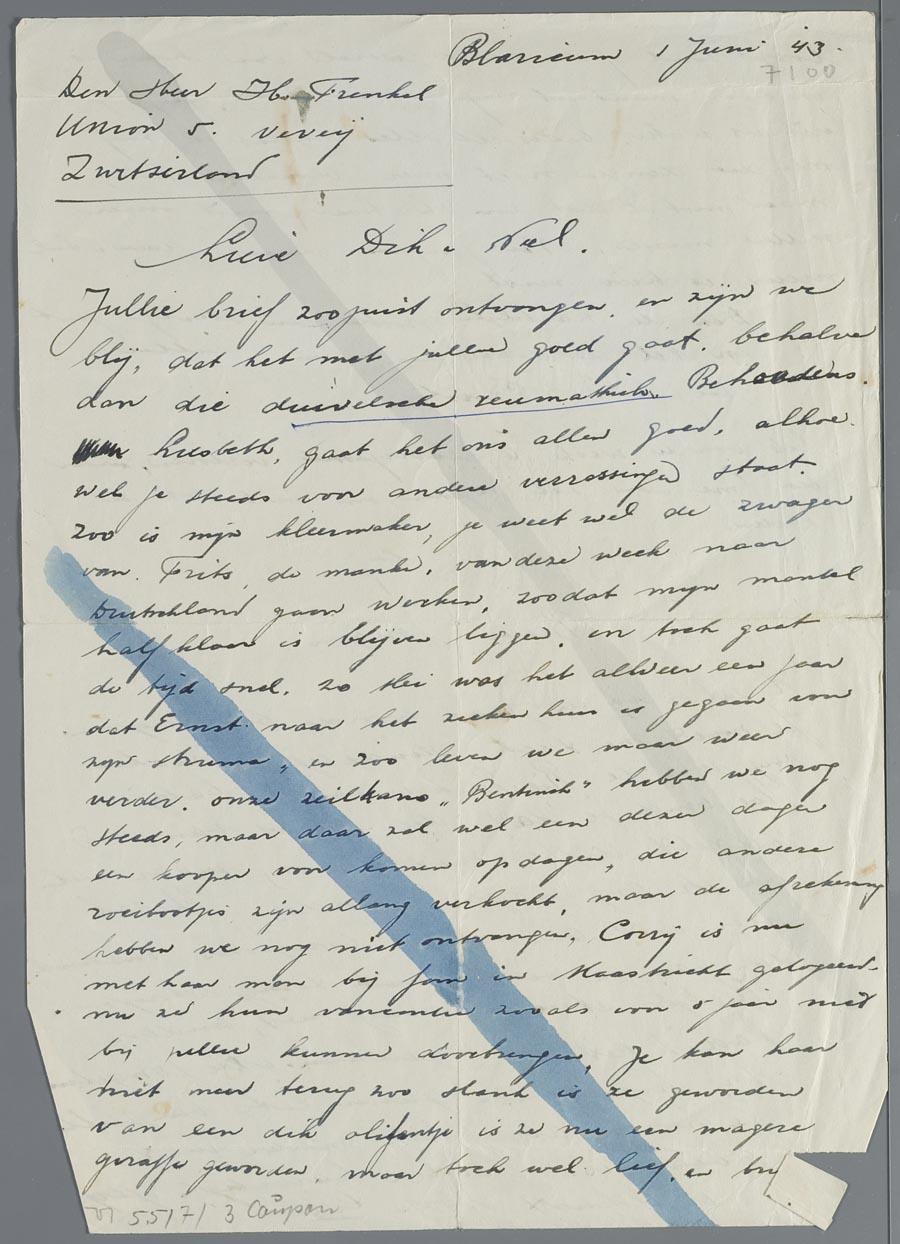 Blaricum 1 Juni '43.
7100
Den Heer H. Frenkel
Union 5. Vevey
Zwitserland
Lieve Dik & Nel.
Jullie brief zoo juist ontvangen, en zijn we
blij, dat het met jullie goed gaat, behalve
dan die duivelsche reumathiek. Behoudens
Liesbeth, gaat het ons allen goed, alhoe-
wel je steeds voor andere verrassingen staat.
Zoo is mijn kleermaker, je weet wel de zwager
van Frits, de manke, van deze week naar
Deutschland gaan werken, zoodat mijn mantel
half klaar is blijven liggen, en toch gaat
de tijd snel. 20 Mei was het alweer een jaar
dat Ernst naar het ziekenhuis is gegaan voor
zijn struma, en zoo leven we maar weer
verder. onze zeilkano "Bentinck" hebben we nog
steeds, maar daar zal wel een dezer dagen
een kooper voor komen opdagen, die andere
roeibootjes zijn allang verkocht, maar de afrekening
hebben we nog niet ontvangen. Corrij is nu
met haar man bij in Maastricht gelogeerd-
nu ze hun vacantie zooals voor 5 jaar niet
bij jullie kunnen doorbrengen, Je kan haar
niet meer terug zoo slank is ze geworden
van een dik olifantje is ze nu een magere
giraffe geworden, maar toch wel lief, en
VI 5517/ 3 Coupon